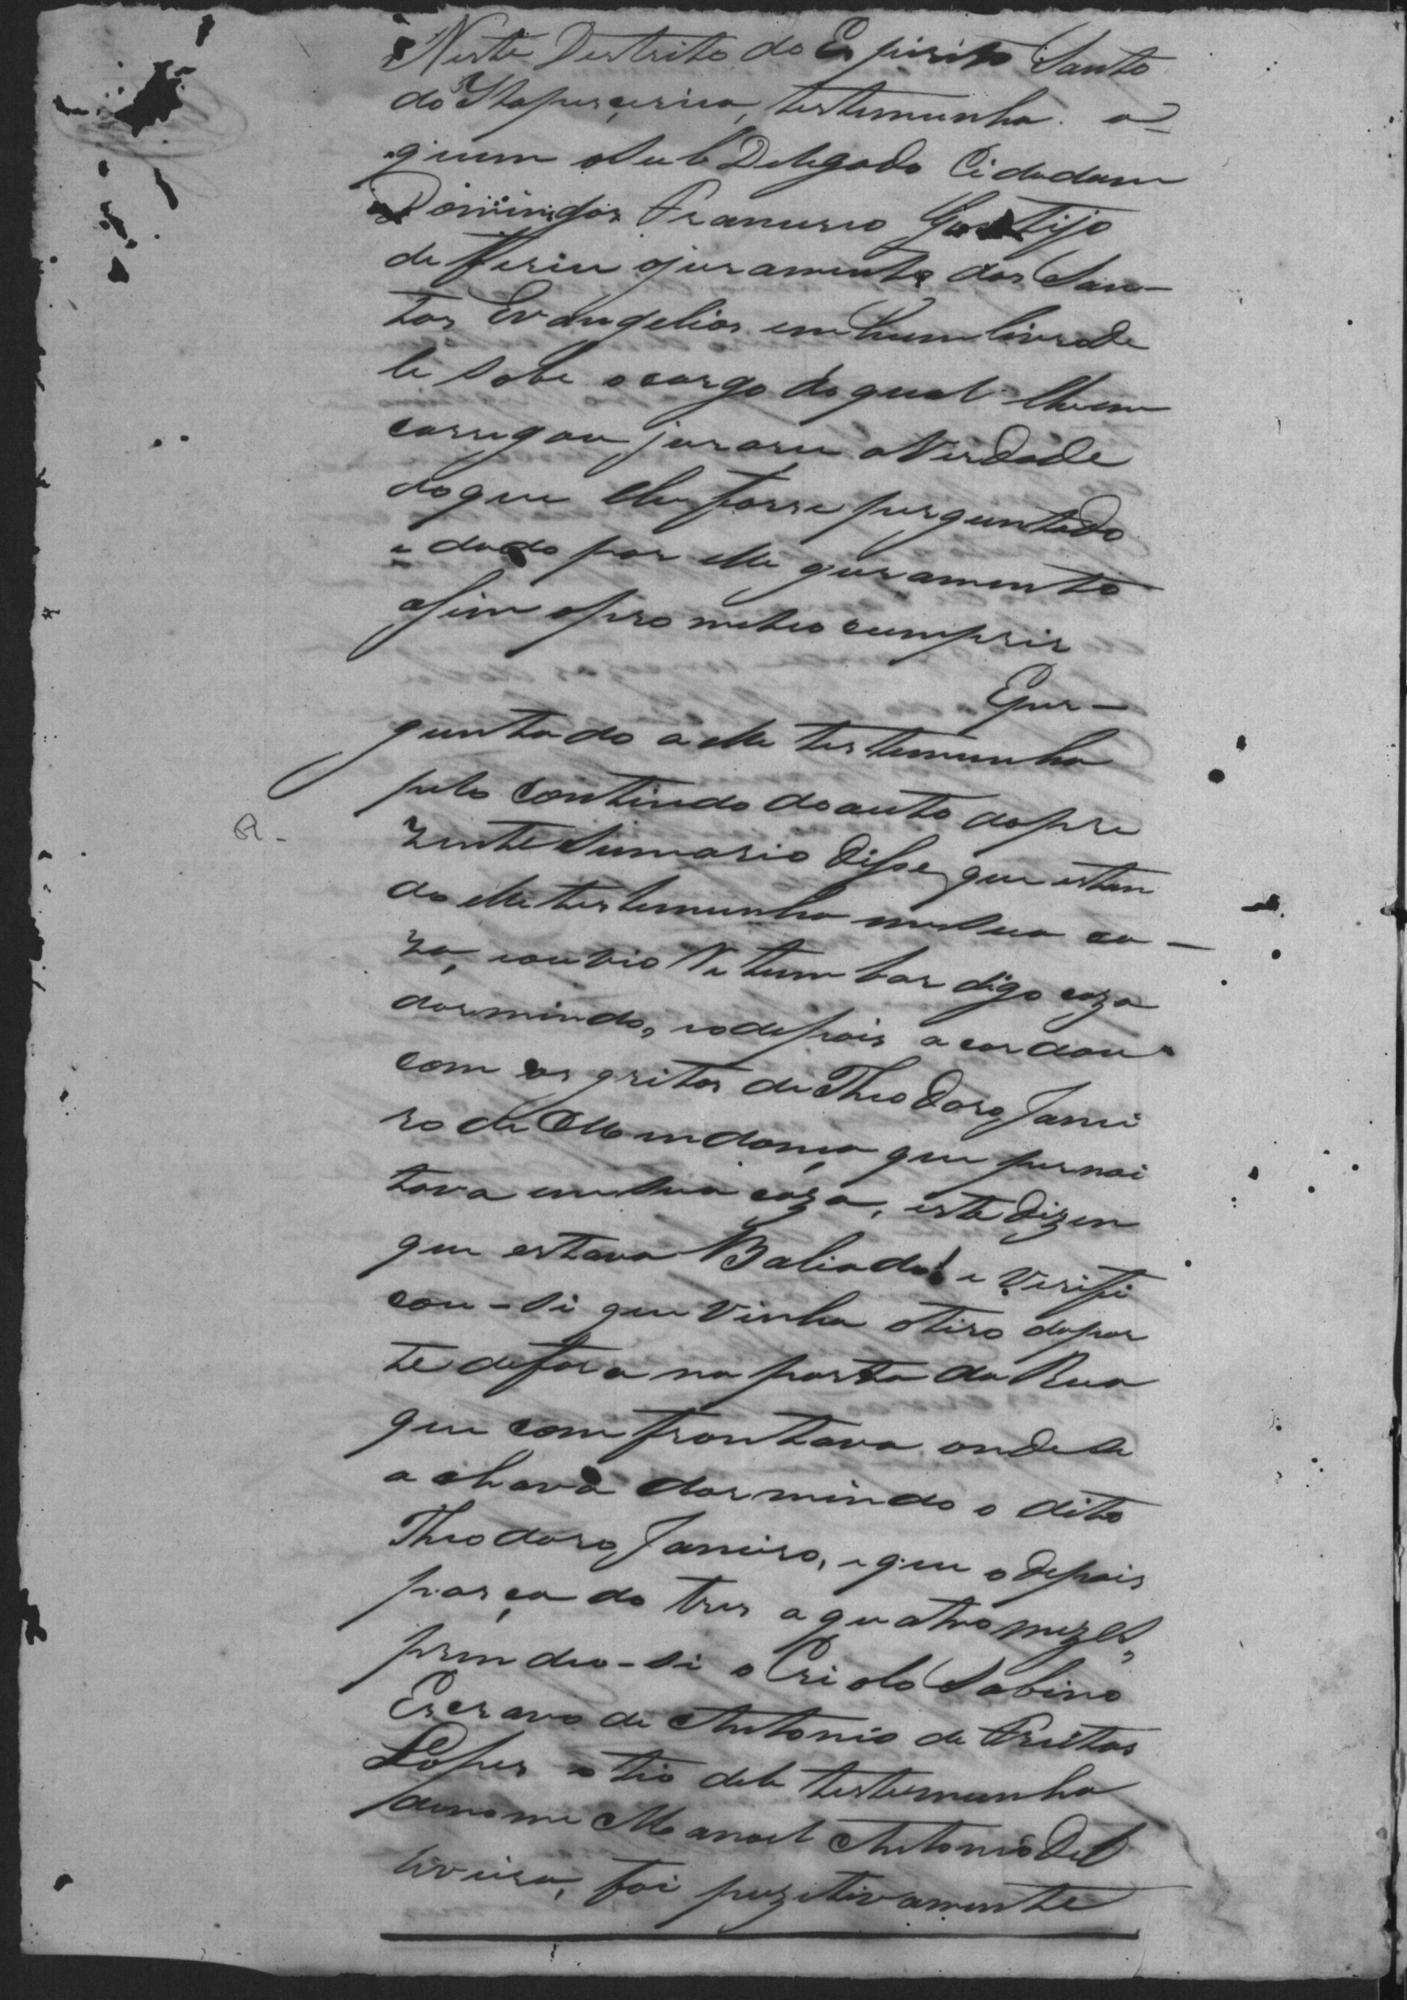 Neste Destrito do Espirito Santo
do Itapecerica, testemunha a
quem o Sub Delegado Cidadam
Domingos Francisco Gontijo
defferiu o juramento dos San-
tos Evangelios em hum livro de
le sobe o cargo do qual lhe en
carregou jurarse a Verdade
do que lhe fosse perguntado
e dado por elle o juramento
asim o prometeo cumprir
E per-
guntado a elle testemunha
pelo contiudo do auto do pre
zente Sumario disse, que estan
do elle testemunha em sua ca-
za, digo caza
dormindo, e o depois acordou
com os gritos de Theodoro Janei
ro de Mendonça que pernoi
tava em sua caza, este dizen
que estava Baliado! e verifi
cou-si que vinha o tiro da par
te de fora na porta da Rua
que comfrontava onde se
achava dormindo o dito
Theodoro Janeiro, e que o depois
pasçado tres a quatro mezes,
prendeo-si o Criolo Sabino
Escravo de Antonio de Freitas
Lopes o tio dele testemunha
de nome Manoel Antonio de Ol
iveira, foi pozetivamente